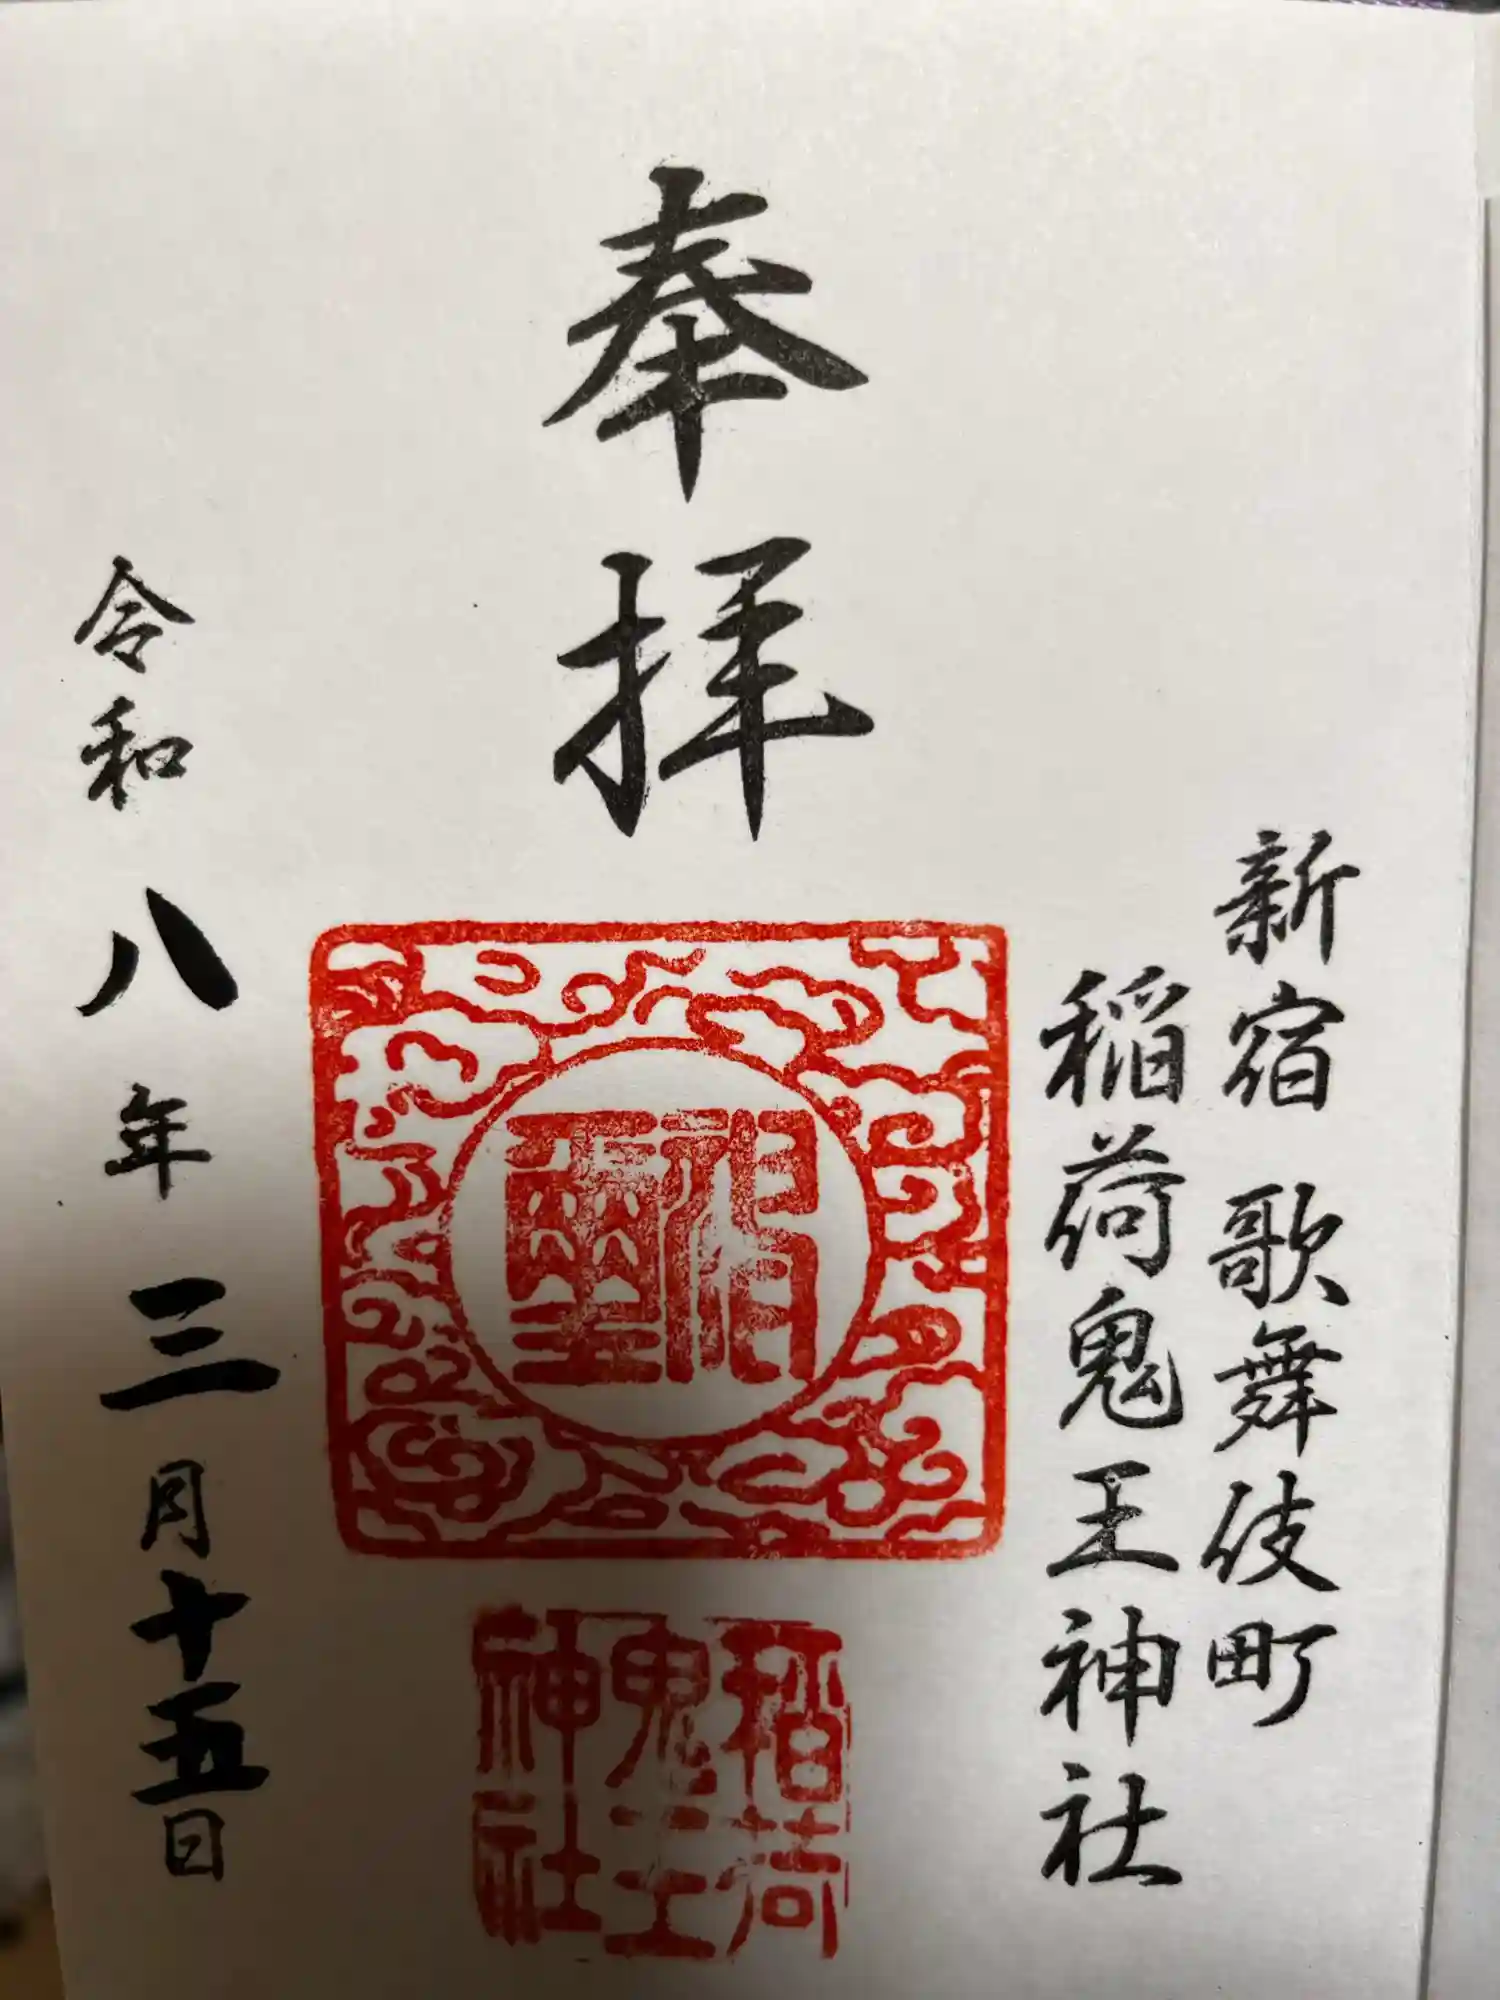 新宿 歌舞伎町
稲荷鬼王神社
奉拝
稲荷
鬼王
神社
令和八年三月十五日